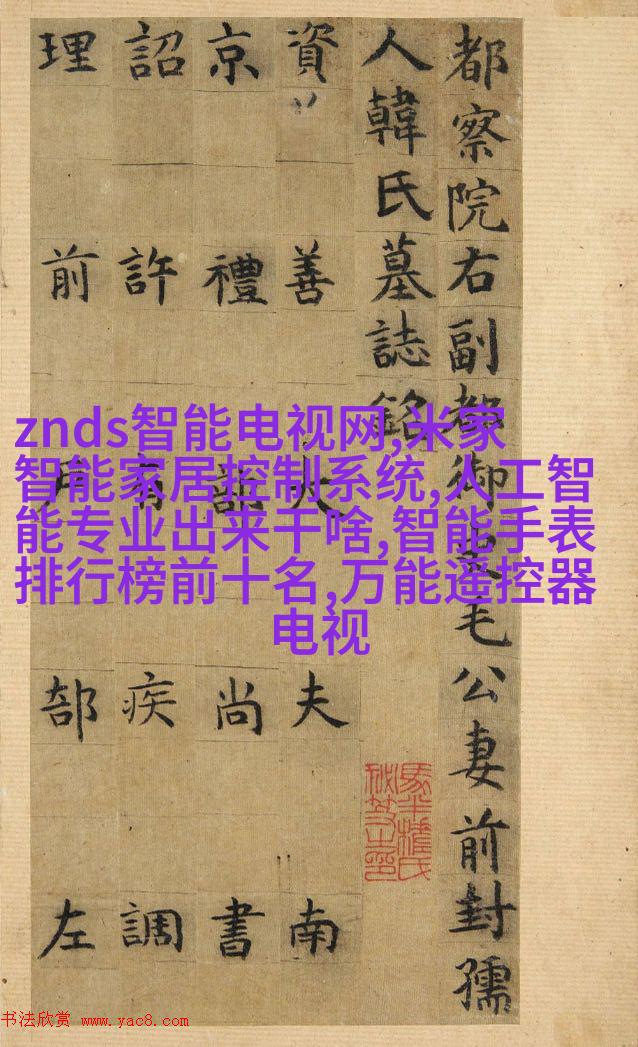 都察院右副都御毛公妻前封孺
人韓氏墓誌銘
資善大夫南
京禮尚書
詔許有疾調
理前部左
znds智能电视网,米家
智能家居控制系统,人工智
能专业出来干啥,智能手表
排行榜前十名,万能遥控器
电视
书法欣赏 www.yac8.com